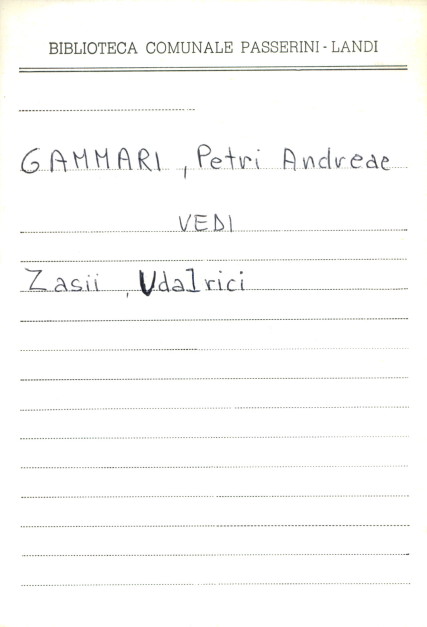 BIBLIOTECA COMUNALE PASSERINI - LANDI
GAMMARI, Petri Andreae
VEDI
Zasii, Udalrici